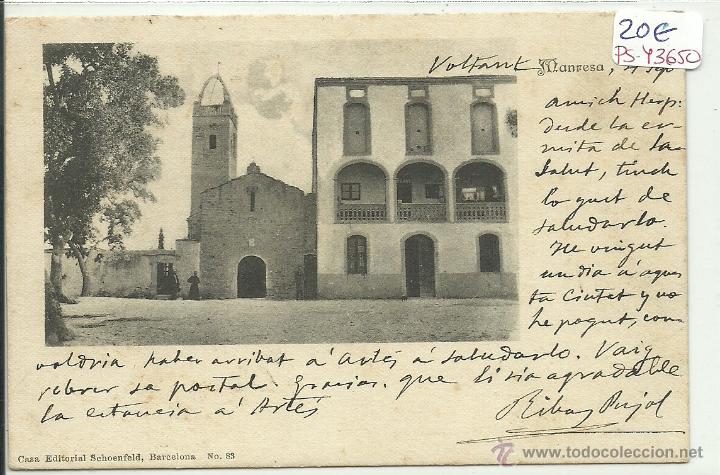 20€
PS-43650
Voltant Manresa, 4 Ago
amich Herp:
desde la er-
mita de la
Salut, tinch
lo gust de
saludarlo.
He vingut
un dia á aques
ta Ciutat y no
he pogut, com
valdria haber arribat á Artés á saludarlo. Vaig
rebrer sa postal. Gracias. que li sia agradable
la estancia á Artés
Ribas Pujol
Casa Editorial Schoenfeld, Barcelona No. 83
www.todocoleccion.net